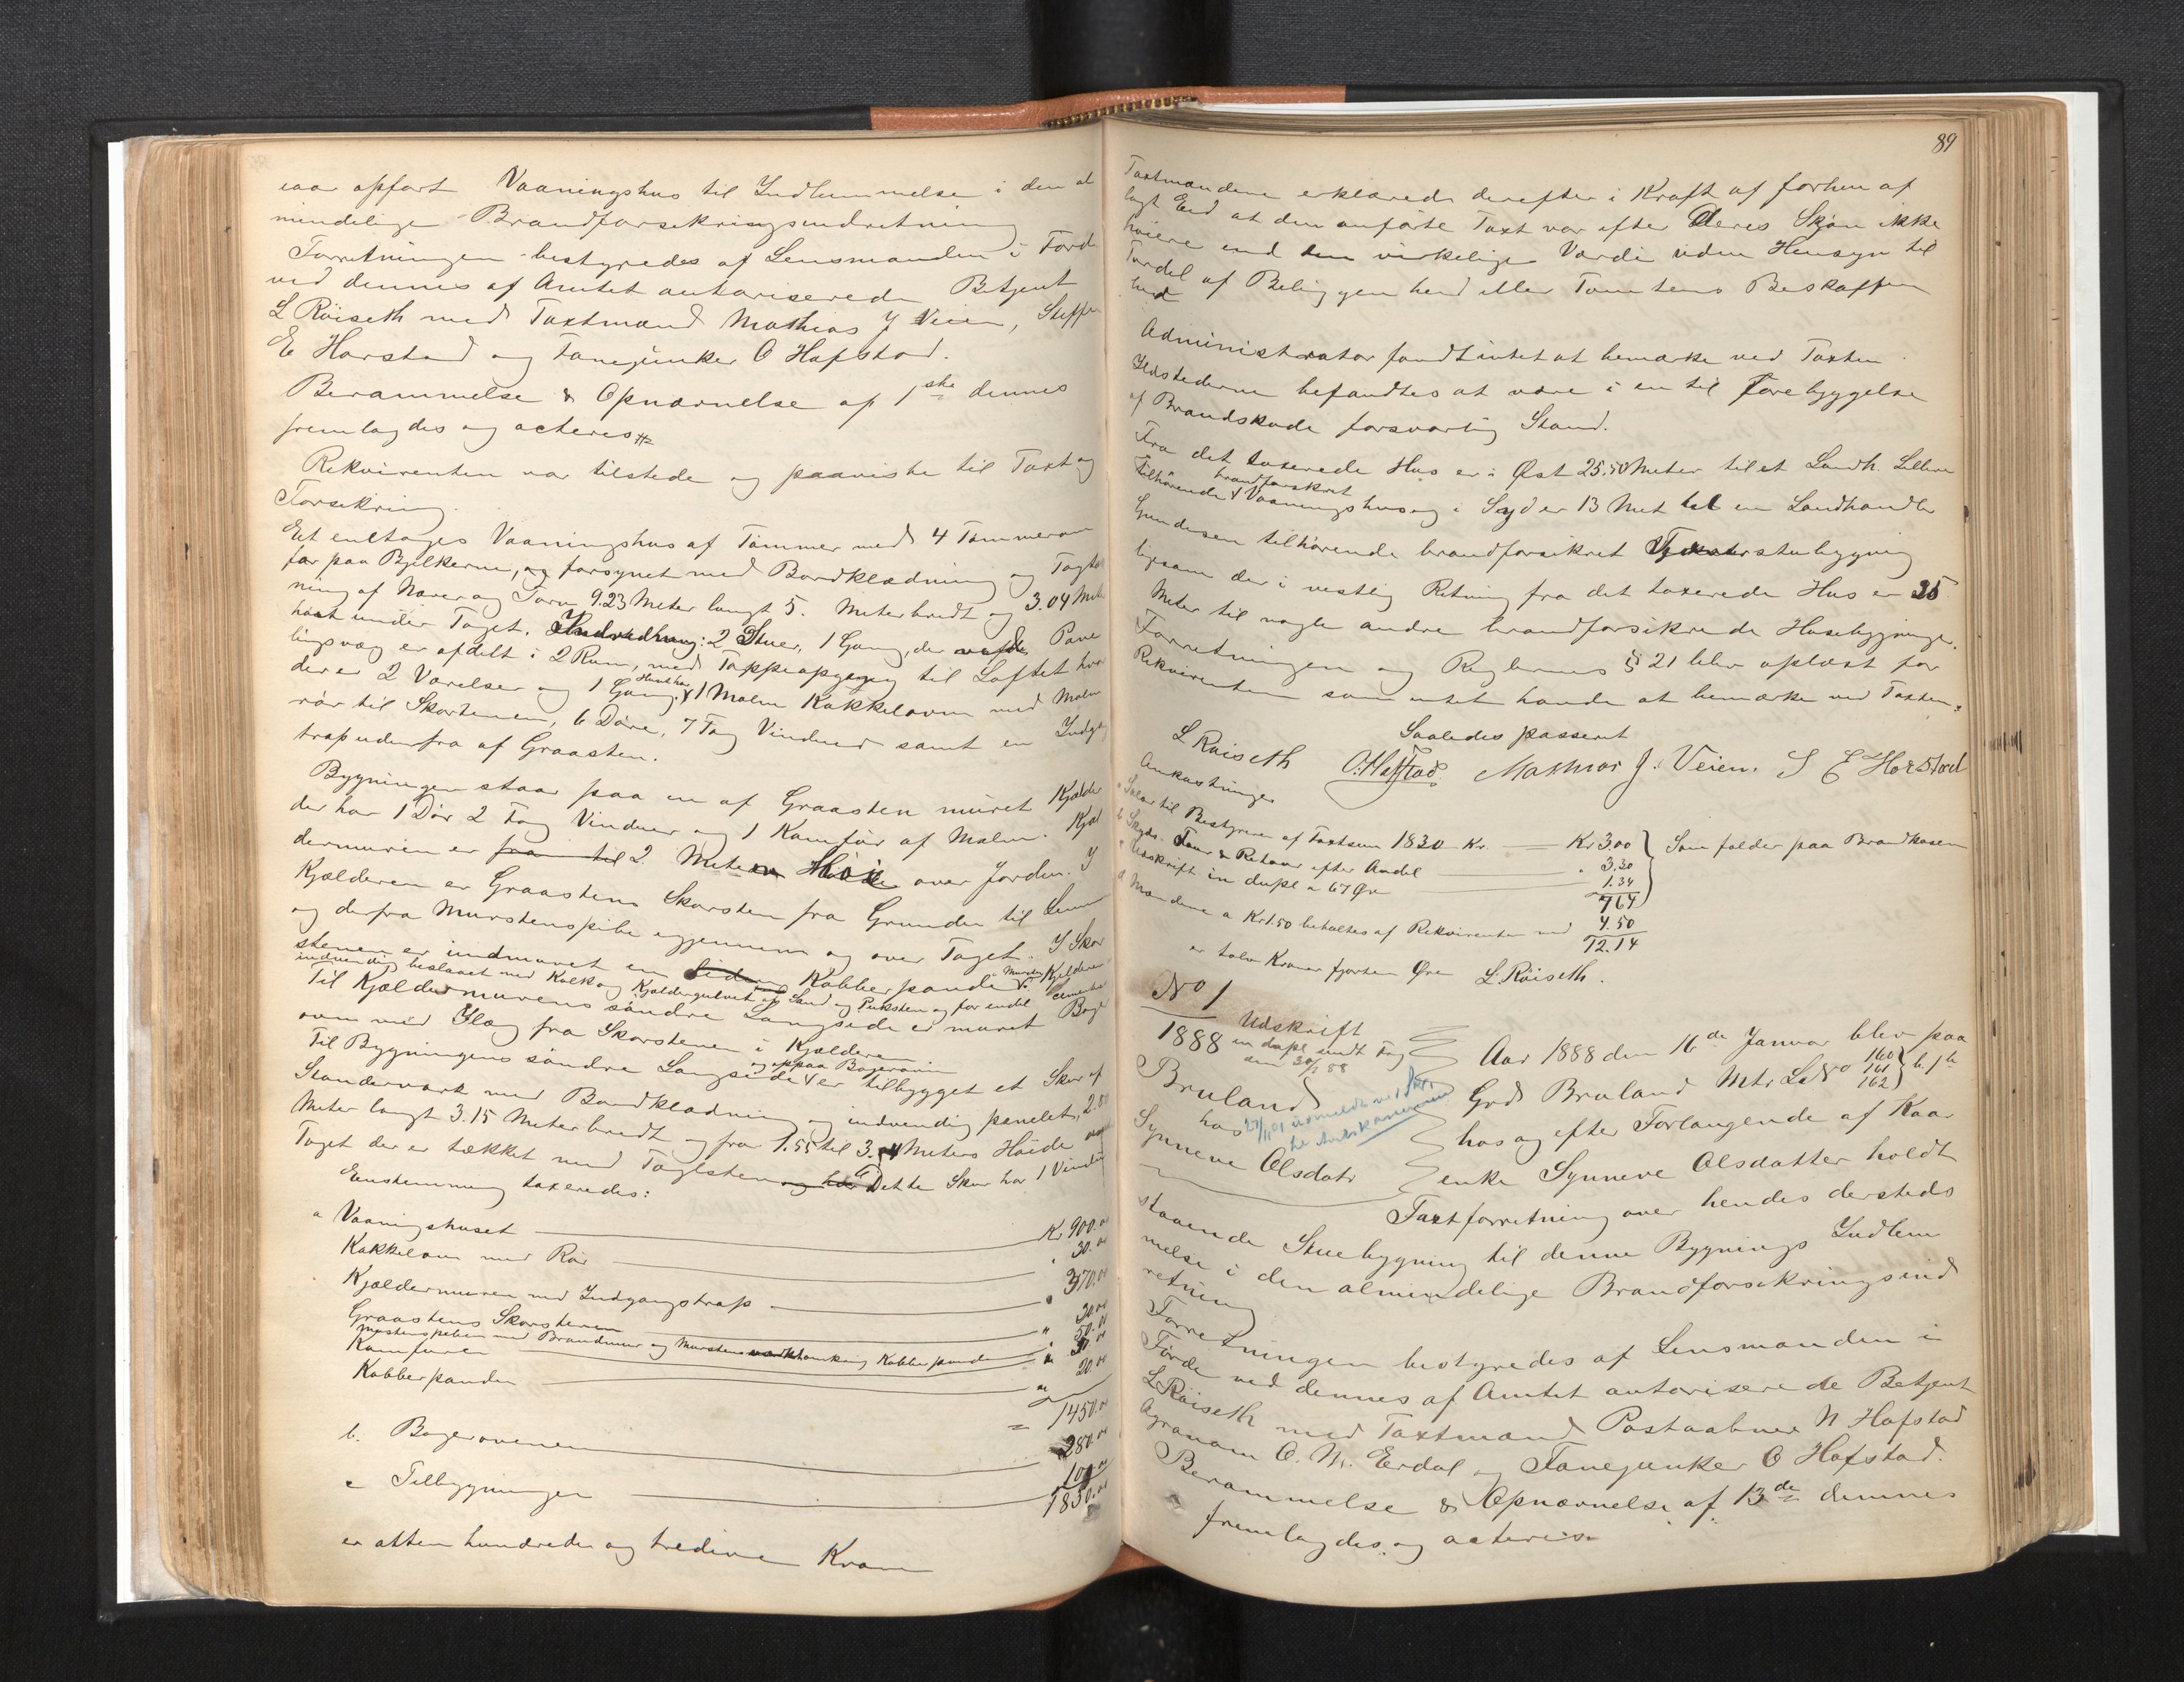 vaar opført Vaaningshus til Indlemmelse i den al
mindelige Brandforsikringsindretning
Forretningen bestyredes af Lensmanden i Førde
ved dennes af Amtet autoriserede Betjent
L Röiseth med Taxtmænd Mathias J Veien, Steffen
E Horstad og Fanejunker O Hafstad.
Berammelse & Opnævnelse af 1ste dennes
fremlagdes og acteres
Rekvirenten var tilstede og paaviste til Taxt og
Forsikring.
Et enltages Vaaningshus af Tømmer med 4 Tømmerom
far paa Bjelkerne, og forsynet med Bordklædning og Tagtæk
ning af Næver og Torv 9.23 Meter langt 5. Meter bredt og 3.04 Meter
høit under Taget. Indredning: 2 Stuer, 1 Gang, der ved Pane
lingsvæg er afdelt i 2 Rum, med Trappeopgang til Loftet hvor
der er 2 Værelser og 1 Gang. 1 Malm Kakkelovn med Malm
rør til Skorstenen, 6 Døre, 7 Fag Vinduer samt en Indgangs
trap udenfra af Graasten.
Bygningen staar paa en af Graasten muret Kjælder
der har 1 Dør 2 Fag Vinduer og 1 Komfür af Malm. Kjæl
dermuren er fra til 2 Meter Høi over Jorden. I
Kjælderen er Graastens Skorsten fra Grunden til
og derfra Murstenspibe igjennem og over Taget. I Skor
stenen er indmuret en Kobberpande.
indvendig beslaaet med Kalk og Kjældergulvet af Sand og Puksten og for endel cementeret
Til Kjældermurens søndre Langside er muret Bager
ovn med Ilæg fra Skorstenen i Kjælderen
Til Bygningens søndre Langside og oppaa Bagerovnen er tilbygget et Skur af
Standerværk med Bordklædning og indvendig panelet, 2.80
Meter langt 3.15 Meter bredt og fra 1.55 til 3.4 Meters Høide under
Taget der er tækket med Taglsten Dette Skur har 1 Vindu
Eenstemmig taxeredes:
a Vaaningshuset Kr 900.00
Kakkelovn med Rør " 30.00
Kjældermuren med Indgangstrap " 370.00
Graastens Skorstenen " 30.00
Murstenspiben med Brandmur og Murstens omkring Kobberpanden " 50.00
Komfuren " 30.00
Kobberpanden " 20.00
= 1450.00
b. Bagerovnen 280.00
c Tilbygningen 100.00
1830.00
er atten hundrede og tredive Kroner
89
Taxtmændene erklærede derefter i Kraft af forhen af
lagt Eed at den anførte Taxt var efter Deres Skjøn ikke
høiere end den virkelige Værdi uden Hensyn til
Fordel af Beliggenhed eller Tomtens Beskaffen
hed
Administrator fandt intet at bemærke ved Taxten.
Ildstederne befandtes at være i en til Forebyggelse
af Brandskade forsvarlig Stand.
Fra det taxerede Hus er i Øst 25.50 Meter til et Landh. Lillem
tilhørende brandforsikret Vaaningshus og i Syd er 13 Met til en Landhandler
Gundersen tilhørende brandforsikret bygning
ligesom der i vestlig Retning fra det taxerede Hus er 35
Meter til nogle andre brandforsikrede Husebygninger.
Forretningen og Reglernes § 21 blev oplæst for
Rekvirenten som intet havde at bemærke ved Taxten.
Saaledes passeret
L Röiseth O. Hafstad. Mathias J. Veien. S E Horstad
Omkostninger
a Salær til Bestyreren af Taxtsum 1830 Kr. Kr 3.00 } Som falder paa Brandkassen
b Skyds. Tour & Retour efter Andel " 3.30
c Udskrift in dupl a 67 Øre 1.34
7.64
d Mændene a Kr 1.50 betaltes af Rekvirenten med 4.50
12.14
er tolv Kroner fjorten Øre L. Röiseth.
No 1
1888
Udskrift
in dupl sendt Fog
den 30/1 88
Bruland
hos
Synneve Olsdatr
Aar 1888 den 16de Januar blev paa
Grd Bruland Mtr. L. No 160 161 162 } b. 1
hos og efter Forlangende af Kaar
enke Synneve Olsdatter holdt
Taxtforretning over hendes dersteds
staaende Stuebygning til denne Bygnings Indlem
melse i den almindelige Brandforsikringsind
retning
Forretningen bestyredes af Lensmanden i
Førde ved dennes af Amtet autoriserede Betjent
L Röiseth med Taxtmænd Postaabner N Hafstad
Agronom O. N. Erdal og Fanejunker O Hafstad.
Berammelse & Opnævnelse af 13de dennes
fremlagdes og acteres